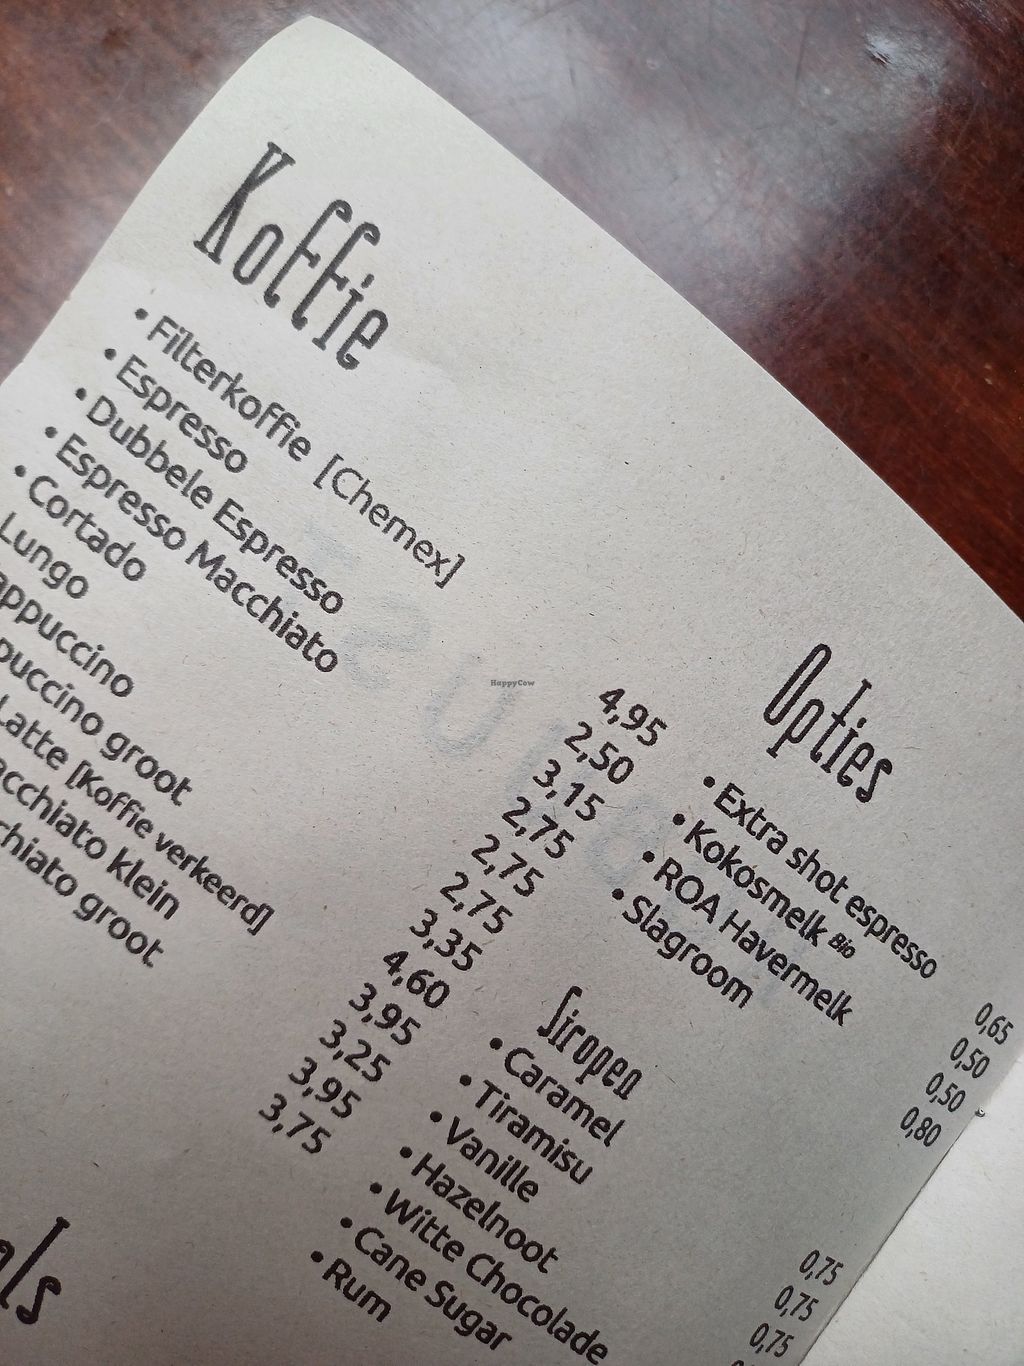 Koffie
• Filterkoffie [Chemex] 4,95
• Espresso 2,50
• Dubbele Espresso 3,15
• Espresso Macchiato 2,75
• Cortado 2,75
Lungo 2,75
appuccino 3,35
puccino groot 4,60
Latte [Koffie verkeerd] 3,95
acchiato klein 3,25
chiato groot 3,95
3,75
Opties
• Extra shot espresso 0,65
• Kokosmelk Bio 0,50
• ROA Havermelk 0,50
• Slagroom 0,80
Siropen
• Caramel 0,75
• Tiramisu 0,75
• Vanille 0,75
• Hazelnoot
• Witte Chocolade
• Cane Sugar
• Rum
als
HappyCow